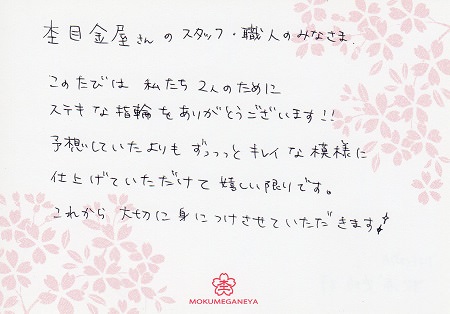 杢目金屋さんのスタッフ・職人のみなさま
このたびは 私たち2人のために
ステキな指輪をありがとうございます!!
予想していたよりも ずっっっと キレイな模様に
仕上げていただけて嬉しい限りです。
これから 大切に身につけさせていただきます
MOKUMEGANEYA